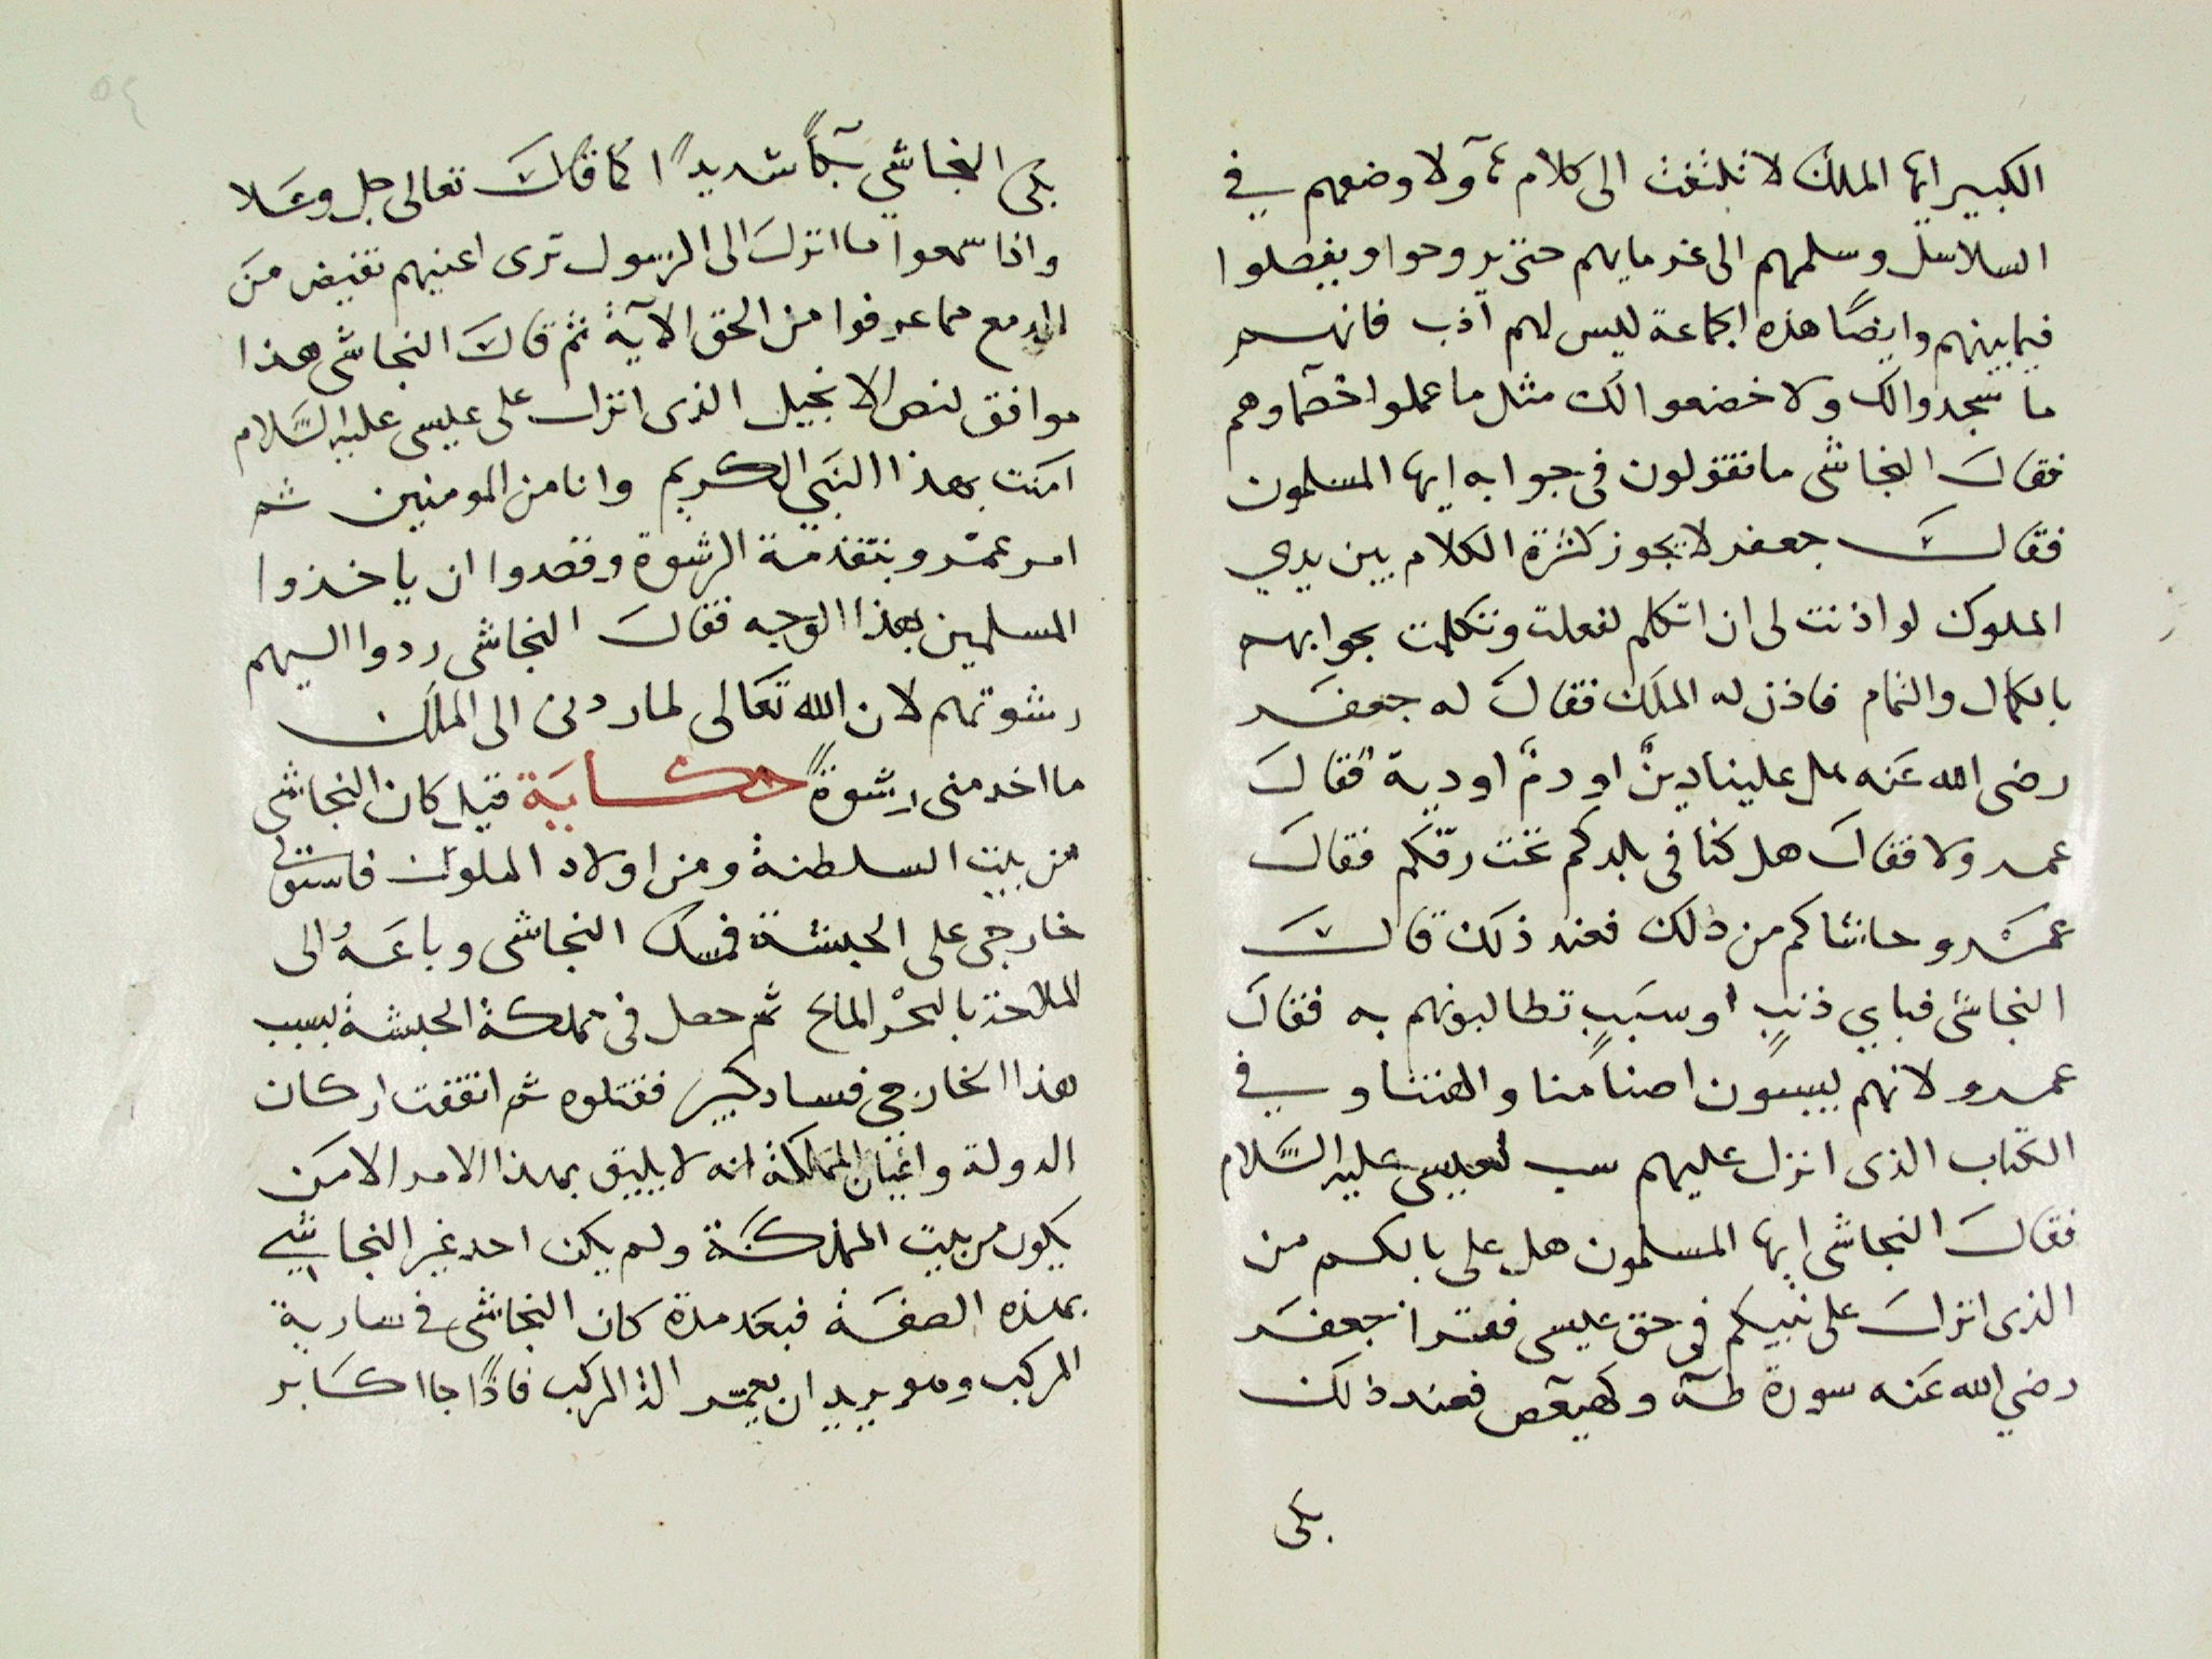 الكبير ايها الملك لا تلتفت الى كلام هآولا وضعهم في
السلاسل وسلمهم الى غرمايهم حتى يروحوا ويفصلوا
فيما بينهم وايضًا هذه الجماعة ليس لهم آدب فانهم
ما سجدوا لك ولا خضعوا لك مثل ما عملوا خصماوهم
فقال النجاشى ما تقولون فى جوابه ايها المسلمون
فقال جعفر لا يجوز كثرة الكلام بين يدي
الملوك لو اذنت لى ان اتكلم لفعلت وتكلمت بجوابهم
بالكمال والتمام فاذن له الملك فقال له جعفر
رضى الله عنه هل علينا دينٌ او دمٌ او دية فقال
عمرو لا فقال هل كنا فى بلدكم تحت رقكم فقال
عمرو حاشاكم من ذلك فعند ذلك قال
النجاشى فباي ذنبٍ او سببٍ تطالبونهم به فقال
عمرو لانهم يسبون اصنامنا والهتنا وفي
الكتاب الذى انزل عليهم سب لعيسى عليه السَّلام
فقال النجاشى ايها المسلمون هل على بالكم من
الذى انزل على نبيكم فى حق عيسى فقرا جعفر
رضي الله عنه سورة طه وكهيعص فعند ذلك
بكى
بكى النجاشي بكاً شديدًا كما قال تعالى جل وعلا
واذا سمعوا ما انزل الى الرسول ترى اعينهم تفيض من
الدمع مما عرفوا من الحق الآية ثم قال النجاشى هذا
موافق لنص الانجيل الذى انزل على عيسى عليه السَّلام
امنت بهذا النبي الكريم وانا من المومنين ثم
امر عمرو بتقدمة الرشوة وقصدوا ان ياخذوا
المسلمين بهذا الوجه فقال النجاشى ردوا اليهم
رشوتهم لان الله تعالى لما ردنى الى الملك
ما اخد منى رشوةً حكاية قيل كان النجاشى
من بيت السلطنة ومن اولاد الملوك فاستولى
خارجى على الحبشة فمسك النجاشى وباعه الى
الملاحة بالبحر المالح ثم حصل فى مملكة الحبشة بسبب
هذا الخارجي فساد كبير فقتلوه ثم اتفقت اركان
الدولة واعيان المملكة انه لا يليق بهذا الامر الا من
يكون من بيت المملكة ولم يكن احد غير النجاشي
بهذه الصفة فبعد مدة كان النجاشى فى سارية
المركب وهو يريد ان يعمر المركب فاذًا جا اكابر